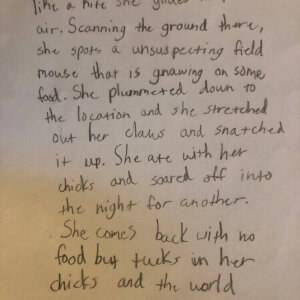 like a kite she glides in
air. Scanning the ground there,
she spots a unsuspecting field
mouse that is gnawing on some
food. She plummeted down to
the location and she stretched
out her claws and snatched
it up. She ate with her
chicks and soared off into
the night for another.
She comes back with no
food but tucks in her
chicks and the world